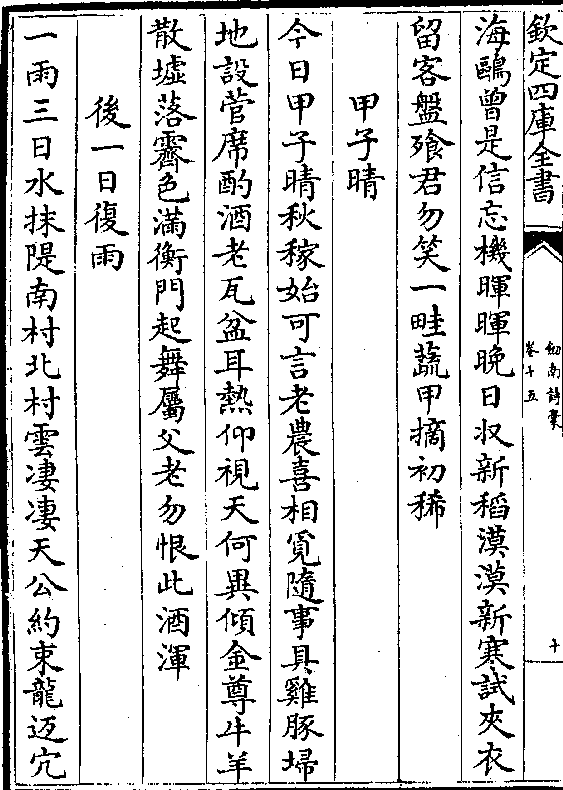 欽定四庫全書
劒南詩稾
卷十五
十
海鷗曾是信忘機暉暉晩日収新稻漠漠新寒試夾衣
留客盤飱君勿笑一畦蔬甲摘初稀
甲子晴
今日甲子晴秋稼始可言老農喜相覓隨事具雞豚埽
地設菅席酌酒老瓦盆耳熱仰視天何異傾金尊牛羊
散墟落霽色滿衡門起舞屬父老勿恨此酒渾
後一日復雨
一雨三日水抹隄南村北村雲淒淒天公約束龍返穴